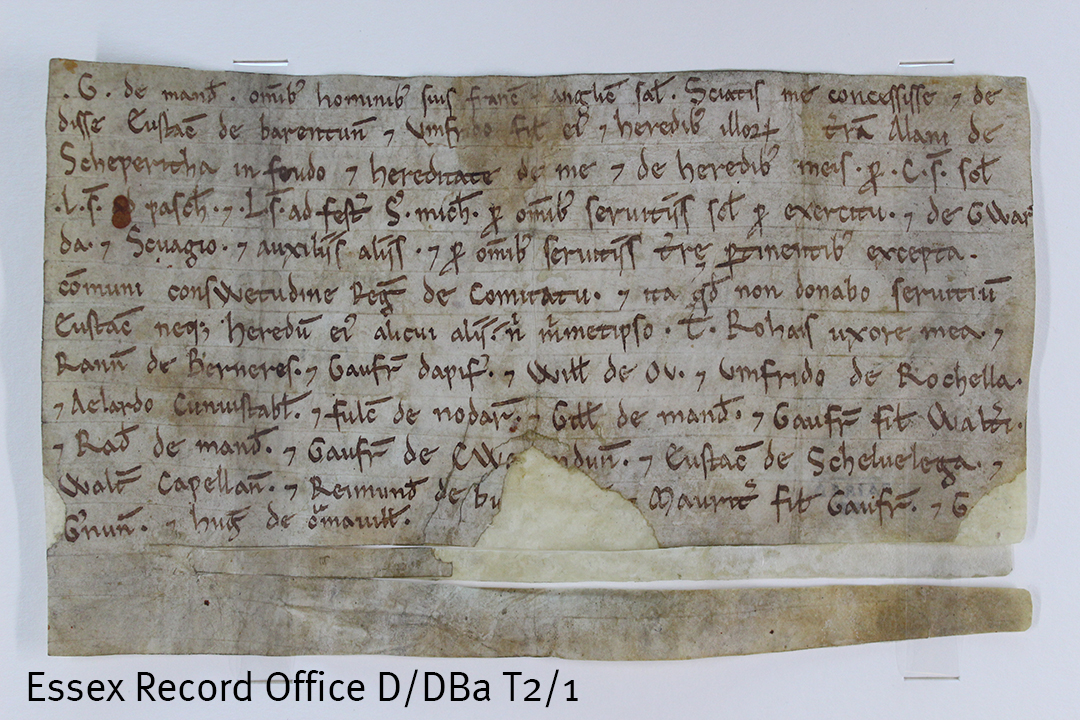 .G. de mand̄. om̄ib; hominib; suis franc̄ ⁊ anglīē sal̄. Sciatis me concessisse ⁊ de
disse Eustac̄ de barentun̄ ⁊ Vmfrido fil̄ ei' ⁊ heredib; illoꝝ t̄rā Alani de
Scheperitha in feudo ⁊ hereditate de me ⁊ de heredib; meis. ꝑ .C. s̄. scl̄
.L. s̄. ad pasch̄. ⁊ .L. s̄. ad fest' S̄. mich̄. ꝑ om̄ib; seruitiis scl̄ ꝑ exercitu. ⁊ de GWar
da. ⁊ Scuagio. ⁊ auxiliis aliis. ⁊ ꝑ om̄ib; seruitiis t̄rę ꝑtinentib; excepta.
cōmuni consWetudine Reḡ de Comitatu. ⁊ ita qd̄ non donabo seruitiū
Eustac̄ neq; heredū ei' alicui aliis. n̄ m̄metipso. T̄. Rohais uxore mea. ⁊
Rann̄ de Berneres. ⁊ Gaufr̄ dapif'. ⁊ Will̄ de Ou. ⁊ Vmfrido de Rochella.
⁊ Aelardo Cunuistabl̄. ⁊ fulc̄ de nodar̄. ⁊ Gill̄ de mand̄. ⁊ Gaufr̄ fil̄ Walt'i.
⁊ Rad̄ de mand̄. ⁊ Gaufr̄ de ndun̄. ⁊ Eustac̄ de Scheluelega. ⁊
Walt̄ Capellan̄. ⁊ Reimund̄ de bu Maurit' fil̄ Gaufr̄. ⁊ G
G'nun̄. ⁊ huḡ de
Essex Record Office D/DBa T2/1